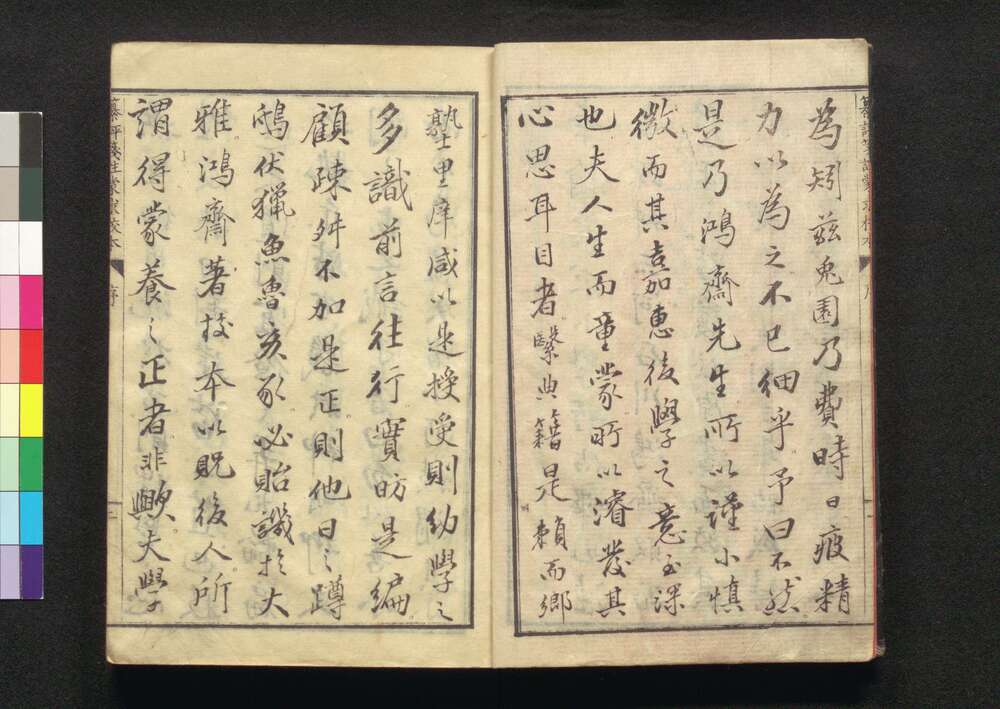 為矧茲兎園乃費時日疲精
力以為之不已細乎予曰不然
是乃鴻齋先生所以謹小慎
微而其嘉惠後學之意至深
也夫人生而童蒙所以濬發其
心思耳目者緊典籍是賴而鄉
塾里庠咸以是授受則幼學之
多識前言往行實昉是編
顧踈舛不加是正則他日之蹲
鴟伏獵魚魯亥豕必貽譏於大
雅鴻齋著校本以貺後人所
謂得蒙養之正者非歟大學
纂評箋註蒙求校本
序